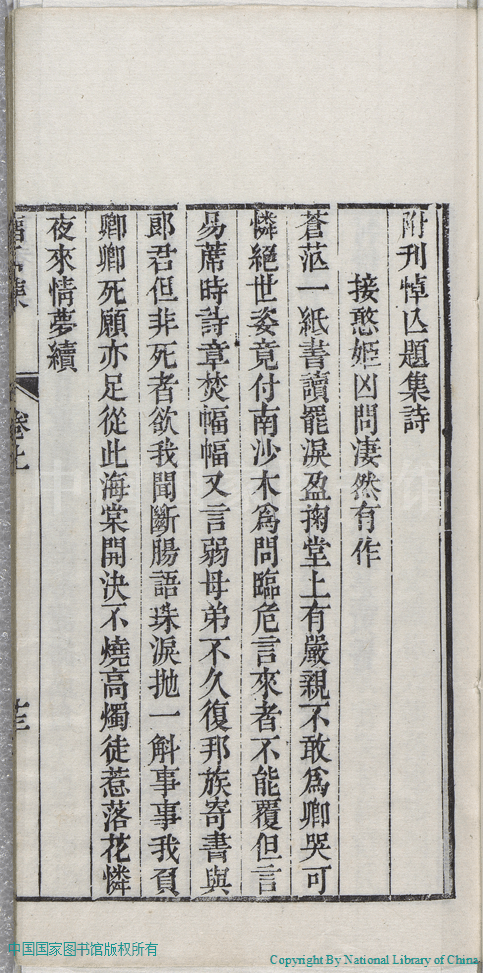 附刊悼亾題集詩
接憨姬凶問淒然有作
蒼茫一紙書讀罷淚盈掬堂上有嚴親不敢爲卿哭可
憐絕世姿竟付南沙木爲問臨危言來者不能覆但言
易蓆時詩章焚幅幅又言弱母弟不久復邦族寄書與
郞君但非死者欲我聞斷腸語珠淚拋一斛事事我負
卿卿死願亦足從此海棠開決不燒高燭徒惹落花憐
夜來情夢續
卷七
中国国家图书馆版权所有
Copyright By National Library of China